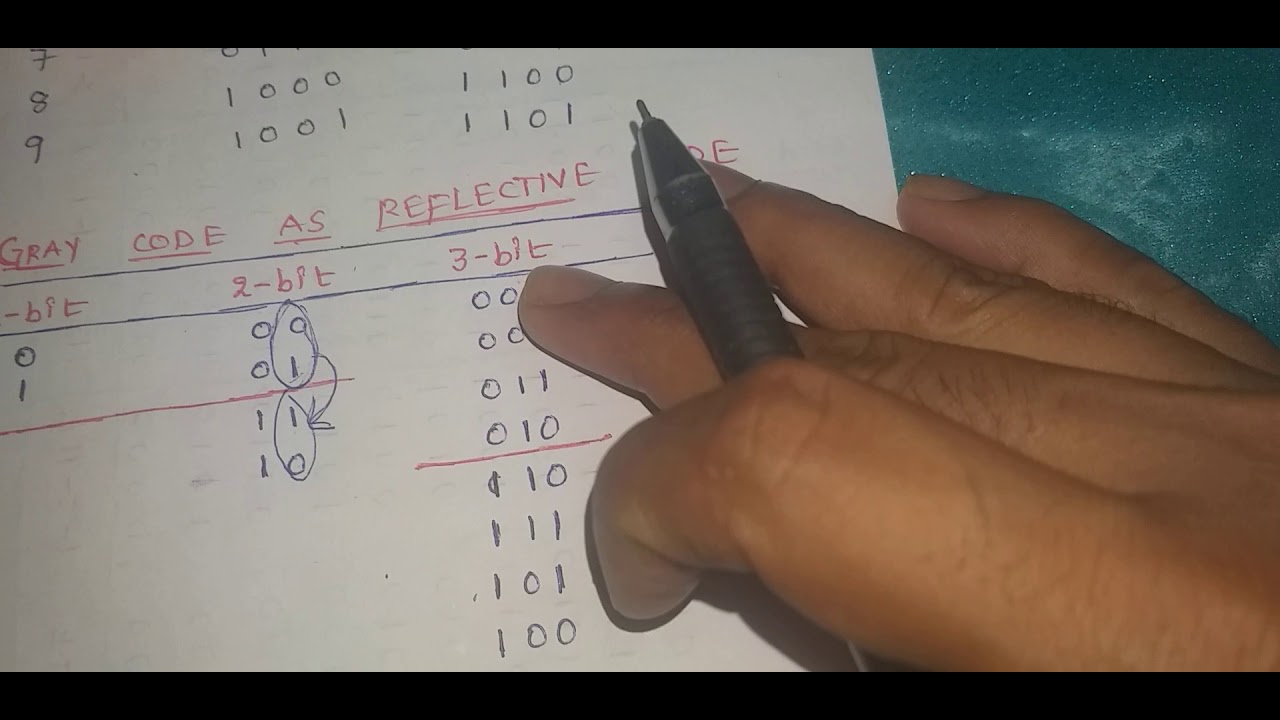 7
8 1000 1100
9 1001 1101
GRAY CODE AS REFLECTIVE
-bit 2-bit 3-bit
0 00 00
1 01 00
11 011
10 010
110
111
101
100